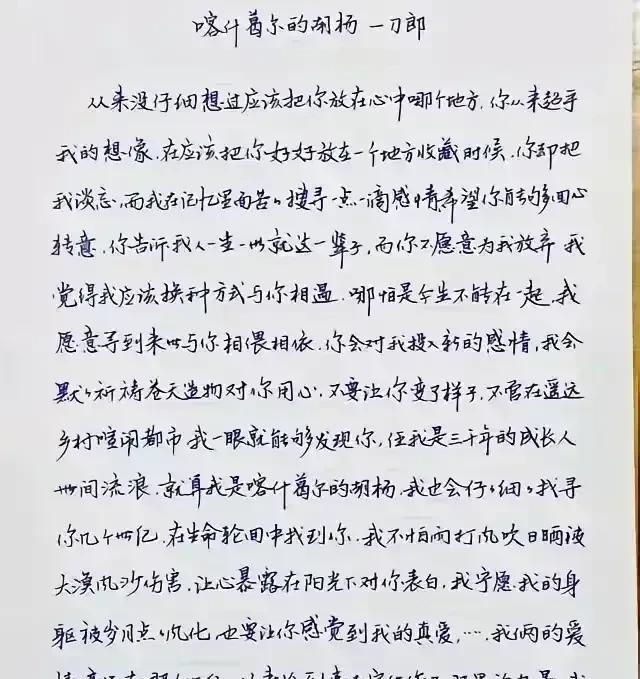 喀什葛尔的胡杨 一刀郎
从来没仔细想过应该把你放在心中哪个地方.你从来超乎
我的想像.在应该把你好好放在一个地方收藏时候.你却把
我淡忘,而我在记忆里面苦々搜寻一点一滴感情希望你能够回心
转意.你告诉我人一生一世就这一辈子,而你不愿意为我放弃 我
觉得我应该换种方式与你相遇.哪怕是今生不能在一起.我
愿意等到来世与你相偎相依.你会对我投入新的感情,我会
默々祈祷苍天造物对你用心.不要让你变了样子.不管在遥远
乡村喧闹都市 我一眼就能够发现你,任我是三千年的成长人
世间流浪.就算我是喀什葛尔的胡杨.我也会仔々细々找寻
你几个世纪.在生命轮回中找到你.我不怕雨打风吹日晒被
大漠风沙伤害.让心暴露在阳光下对你表白.我宁愿我的身
躯被岁月点々风化.也要让你感觉到我的真爱,….我俩的爱